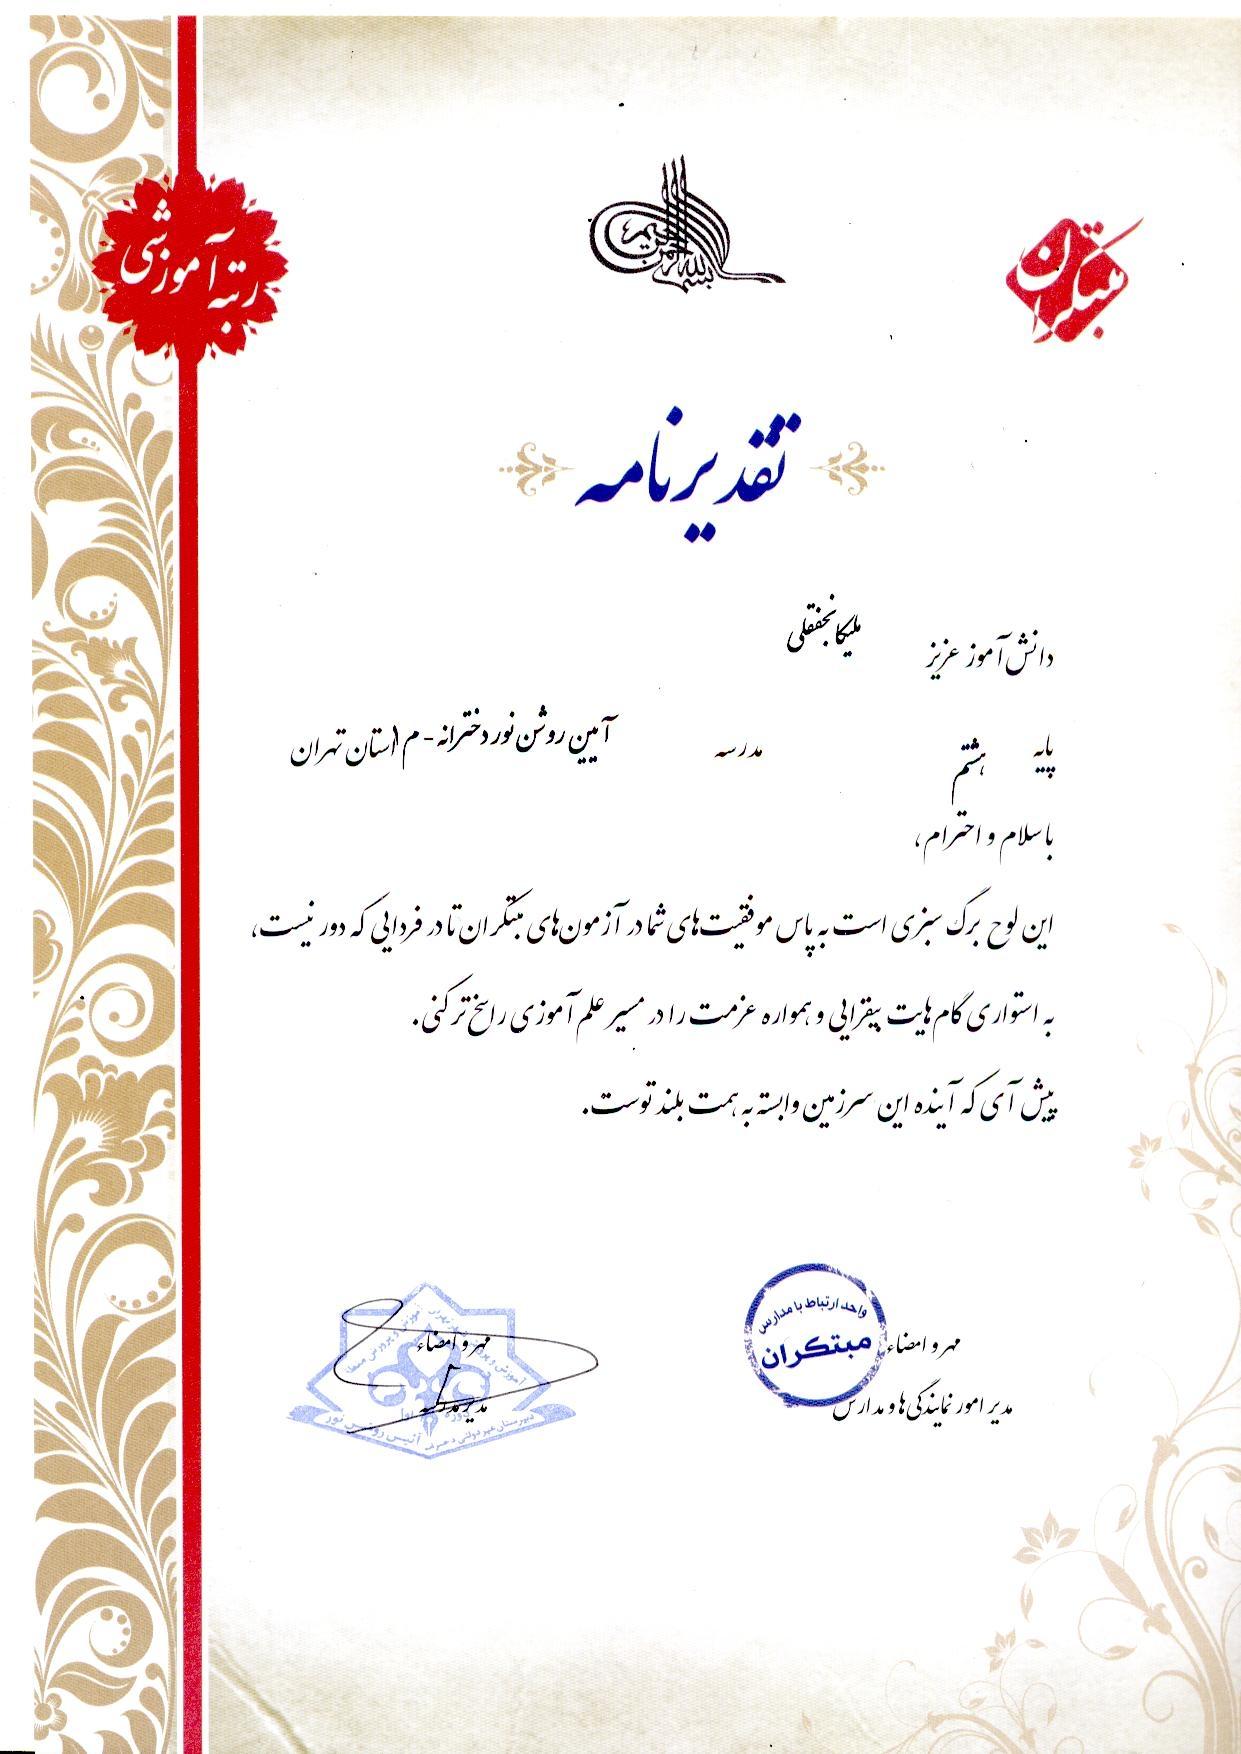 بسم الله الرحمن الرحیم
مبتکران
رتبه آموزشی
تقدیرنامه
دانش آموز عزیز ملیکا نجفقلی
پایه هشتم مدرسه آیین روشن نور دخترانه - م ا استان تهران
با سلام و احترام،
این لوح برگ سبزی است به پاس موفقیت‌های شما در آزمون‌های مبتکران تا در فردایی که دور نیست،
به استواری گام‌هایت بیفزایی و همواره عزمت را در مسیر علم آموزی راسخ تر کنی.
پیش آی که آینده این سرزمین وابسته به همت بلند توست.
واحد ارتباط با مدارس
مبتکران
مهر و امضاء
مدیر امور نمایندگی‌ها و مدارس
مهر و امضاء
مدیر مدرسه